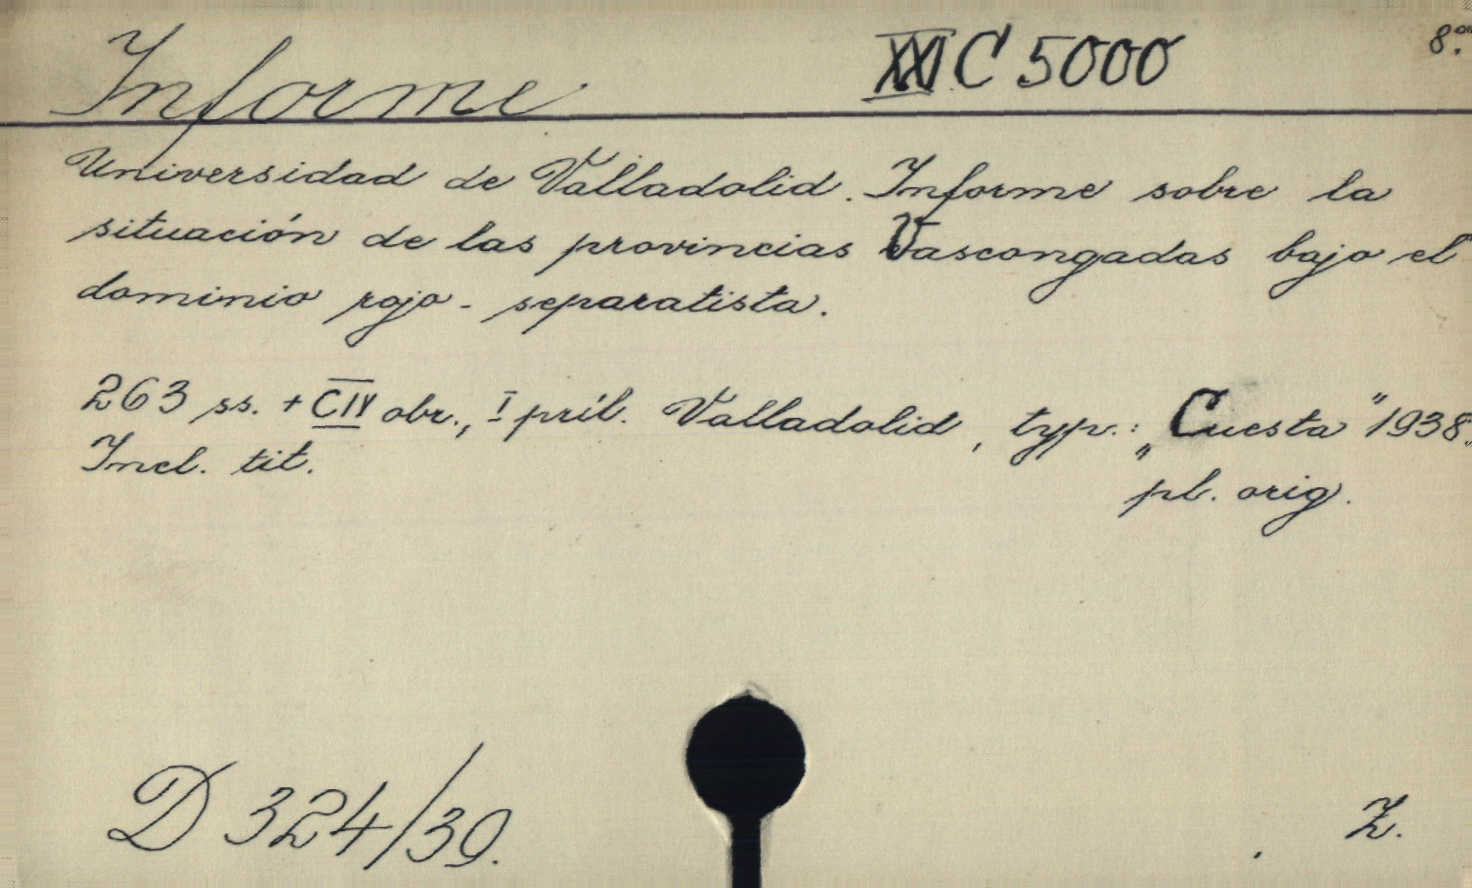 Informe
XXI C 5000
8°.
Universidad de Valladolid. Informe sobre la
situación de las provincias Vascongadas bajo el
dominio rojo - separatista.
263 ss. + CIV obr., I príl. Valladolid, typ.: „Cuesta" 1938.
Incl. tit.
pl. orig.
D 324/39.
Z.